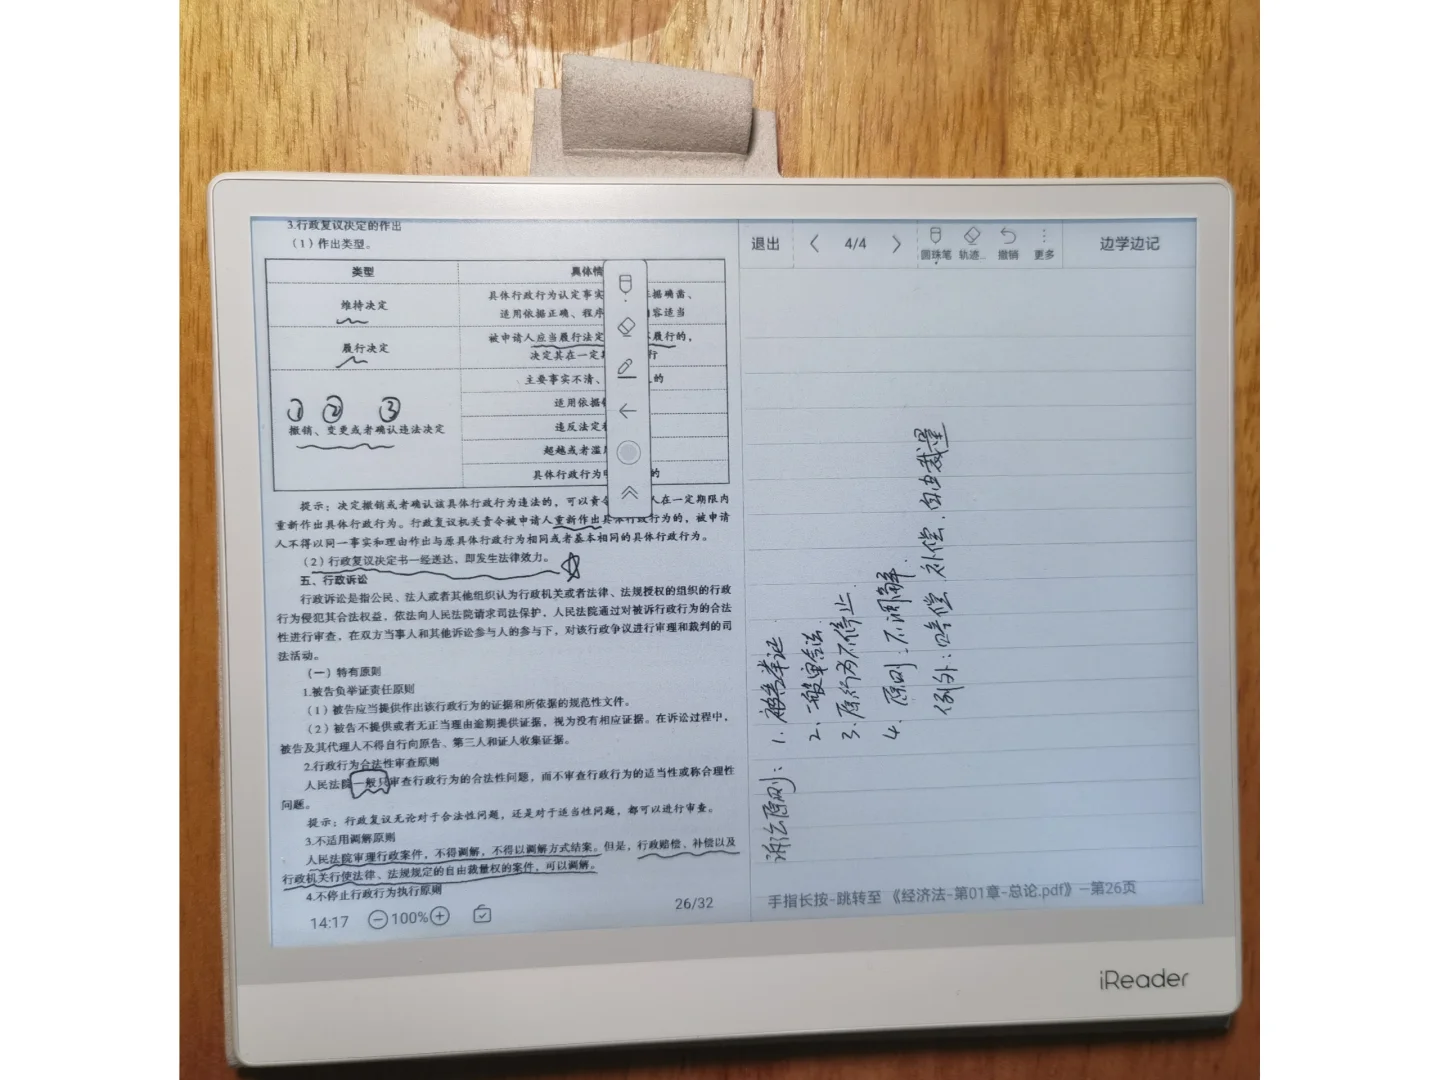 3.行政复议决定的作出
（1）作出类型。
类型
具体情
维持决定
具体行政行为认定事实
据确凿、
适用依据正确、程序
容适当
履行决定
被申请人应当履行法定
履行的，
决定其在一定期
行
① ② ③
撤销、变更或者确认违法决定
主要事实不清、
的
适用依据
违反法定
超越或者滥
具体行政行为明
的
提示：决定撤销或者确认该具体行政行为违法的，可以责令
人在一定期限内
重新作出具体行政行为。行政复议机关责令被申请人重新作出具体行政行为的，被申请
人不得以同一事实和理由作出与原具体行政行为相同或者基本相同的具体行政行为。
（2）行政复议决定书一经送达，即发生法律效力。
五、行政诉讼
行政诉讼是指公民、法人或者其他组织认为行政机关或者法律、法规授权的组织的行政
行为侵犯其合法权益，依法向人民法院请求司法保护，人民法院通过对被诉行政行为的合法
性进行审查，在双方当事人和其他诉讼参与人的参与下，对该行政争议进行审理和裁判的司
法活动。
（一）特有原则
1.被告负举证责任原则
（1）被告应当提供作出该行政行为的证据和所依据的规范性文件。
（2）被告不提供或者无正当理由逾期提供证据，视为没有相应证据。在诉讼过程中，
被告及其代理人不得自行向原告、第三人和证人收集证据。
2.行政行为合法性审查原则
人民法院一般只审查行政行为的合法性问题，而不审查行政行为的适当性或称合理性
问题。
提示：行政复议无论对于合法性问题，还是对于适当性问题，都可以进行审查。
3.不适用调解原则
人民法院审理行政案件，不得调解，不得以调解方式结案。但是，行政赔偿、补偿以及
行政机关行使法律、法规规定的自由裁量权的案件，可以调解。
4.不停止行政行为执行原则
14:17
100%
26/32
退出
4/4
圆珠笔
轨迹...
撤销
更多
边学边记
诉讼原则：1. 被告举证
2. 一般审合法
3. 原行为不停止.
4. 原则：不调解.
例外：赔偿 补偿. 自由裁量
手指长按-跳转至 《经济法-第01章-总论.pdf》—第26页
iReader